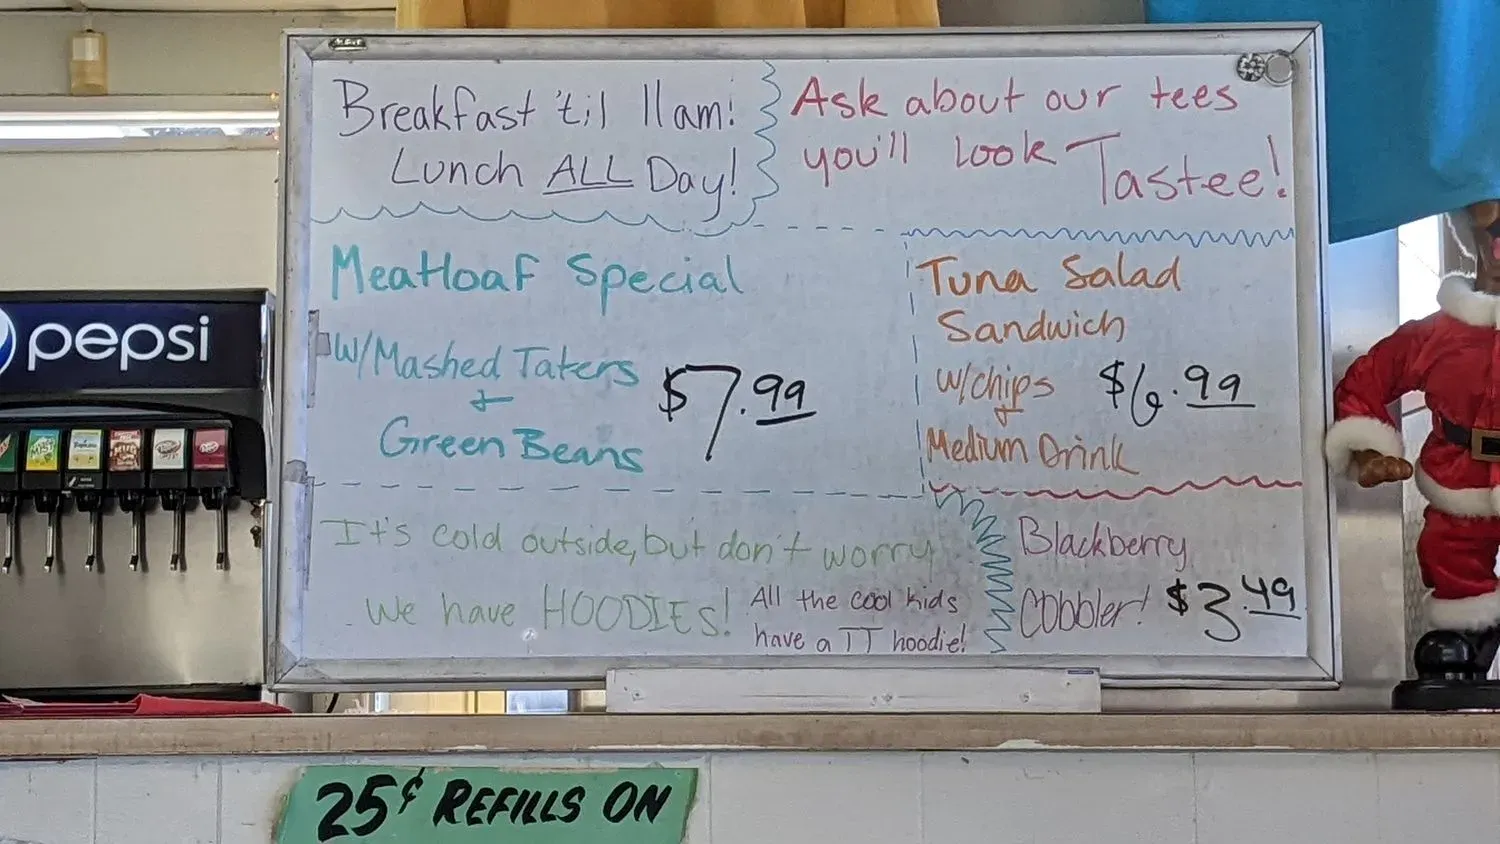 Breakfast 'til 11am!
Lunch ALL Day!
Ask about our tees
you'll look Tastee!
Meatloaf Special
w/Mashed Taters
+
Green Beans
$7.99
Tuna Salad
Sandwich
w/chips $6.99
+
Medium Drink
It's cold outside, but don't worry
we have HOODIES!
All the cool kids
have a TT hoodie!
Blackberry
Cobbler! $3.49
pepsi
25¢ REFILLS ON